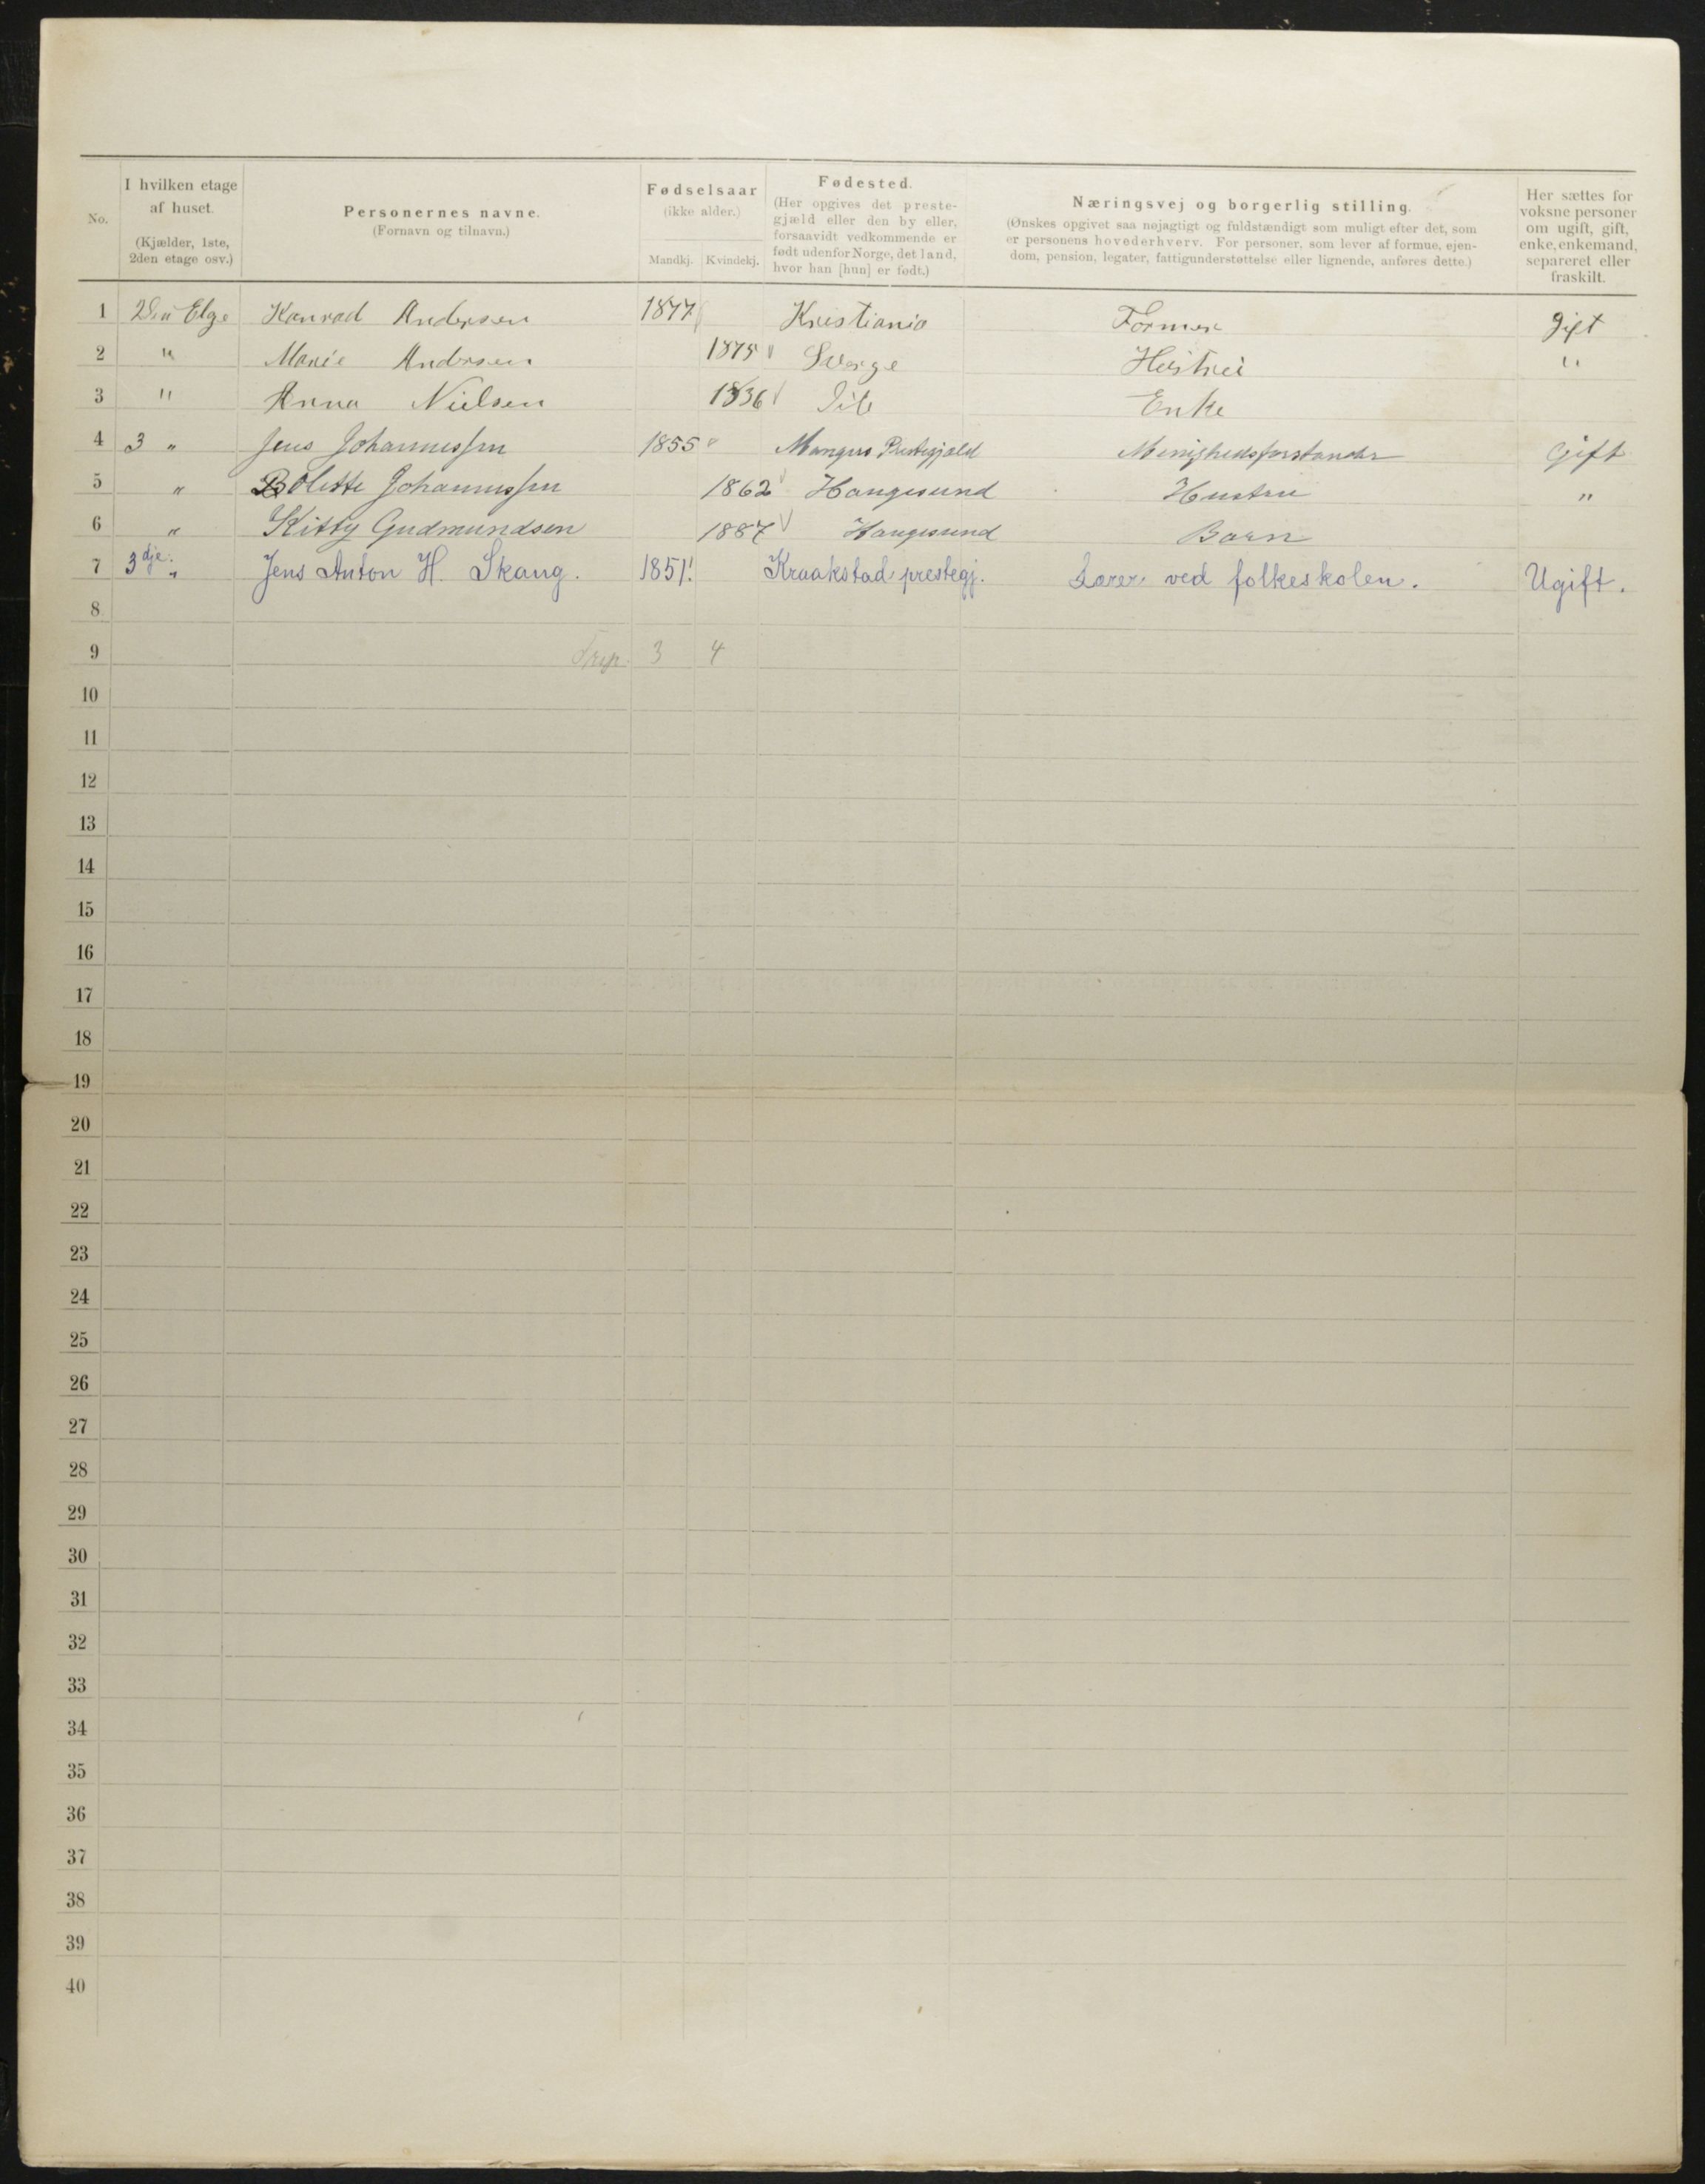 No.
I hvilken etage af huset.
(Kjælder, 1ste, 2den etage osv.)
Personernes navne.
(Fornavn og tilnavn.)
Fødselsaar
(ikke alder.)
Mandkj. Kvindekj.
Fødested.
(Her opgives det preste-
gjæld eller den by eller,
forsaavidt vedkommende er
født udenfor Norge, det land,
hvor han [hun] er født.)
Næringsvej og borgerlig stilling.
(Ønskes opgivet saa nøjagtigt og fuldstændigt som muligt efter det, som
er personens hovederhverv. For personer, som lever af formue, ejen-
dom, pension, legater, fattigunderstøttelse eller lignende, anføres dette.)
Her sættes for
voksne personer
om ugift, gift,
enke, enkemand,
separeret eller
fraskilt.
1 2den Etge Konrad Andersen 1877 Kristiania Former gift
2 " Marie Andersen 1875 Sverge Hustru "
3 " Anna Nielsen 1836 Enke
4 3 " Jens Johannessen 1855 Mangers Prestegjæld Menighedsforstander Gift
5 " Bolette Johannessen 1862 Haugesund Hustru "
6 " Kitty Gudmundsen 1887 Haugesund Barn
7 3dje. " Jens Anton H. Skaug. 1851. Kraakstad prestegj. Lærer ved folkeskolen. Ugift.
8
9 3 4
10
11
12
13
14
15
16
17
18
19
20
21
22
23
24
25
26
27
28
29
30
31
32
33
34
35
36
37
38
39
40